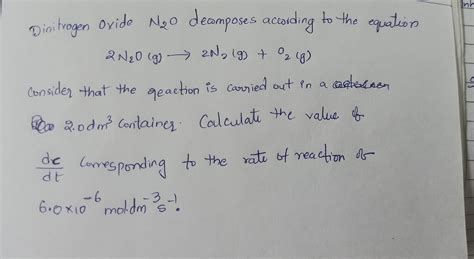 Dinitrogen Oxide N2O decomposes according to the equation
2N2O (g) → 2N2 (g) + O2 (g)
Consider that the reaction is carried out in a
2.0dm³ container. Calculate the value of
dε/dt corresponding to the rate of reaction of
6.0×10⁻⁶ mol dm⁻³ s⁻¹.